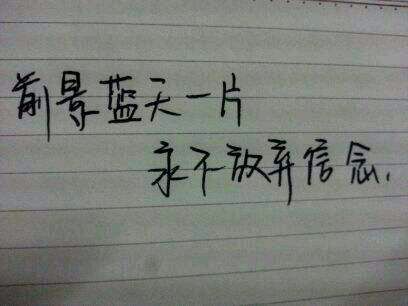 前景蓝天一片
永不放弃信念.